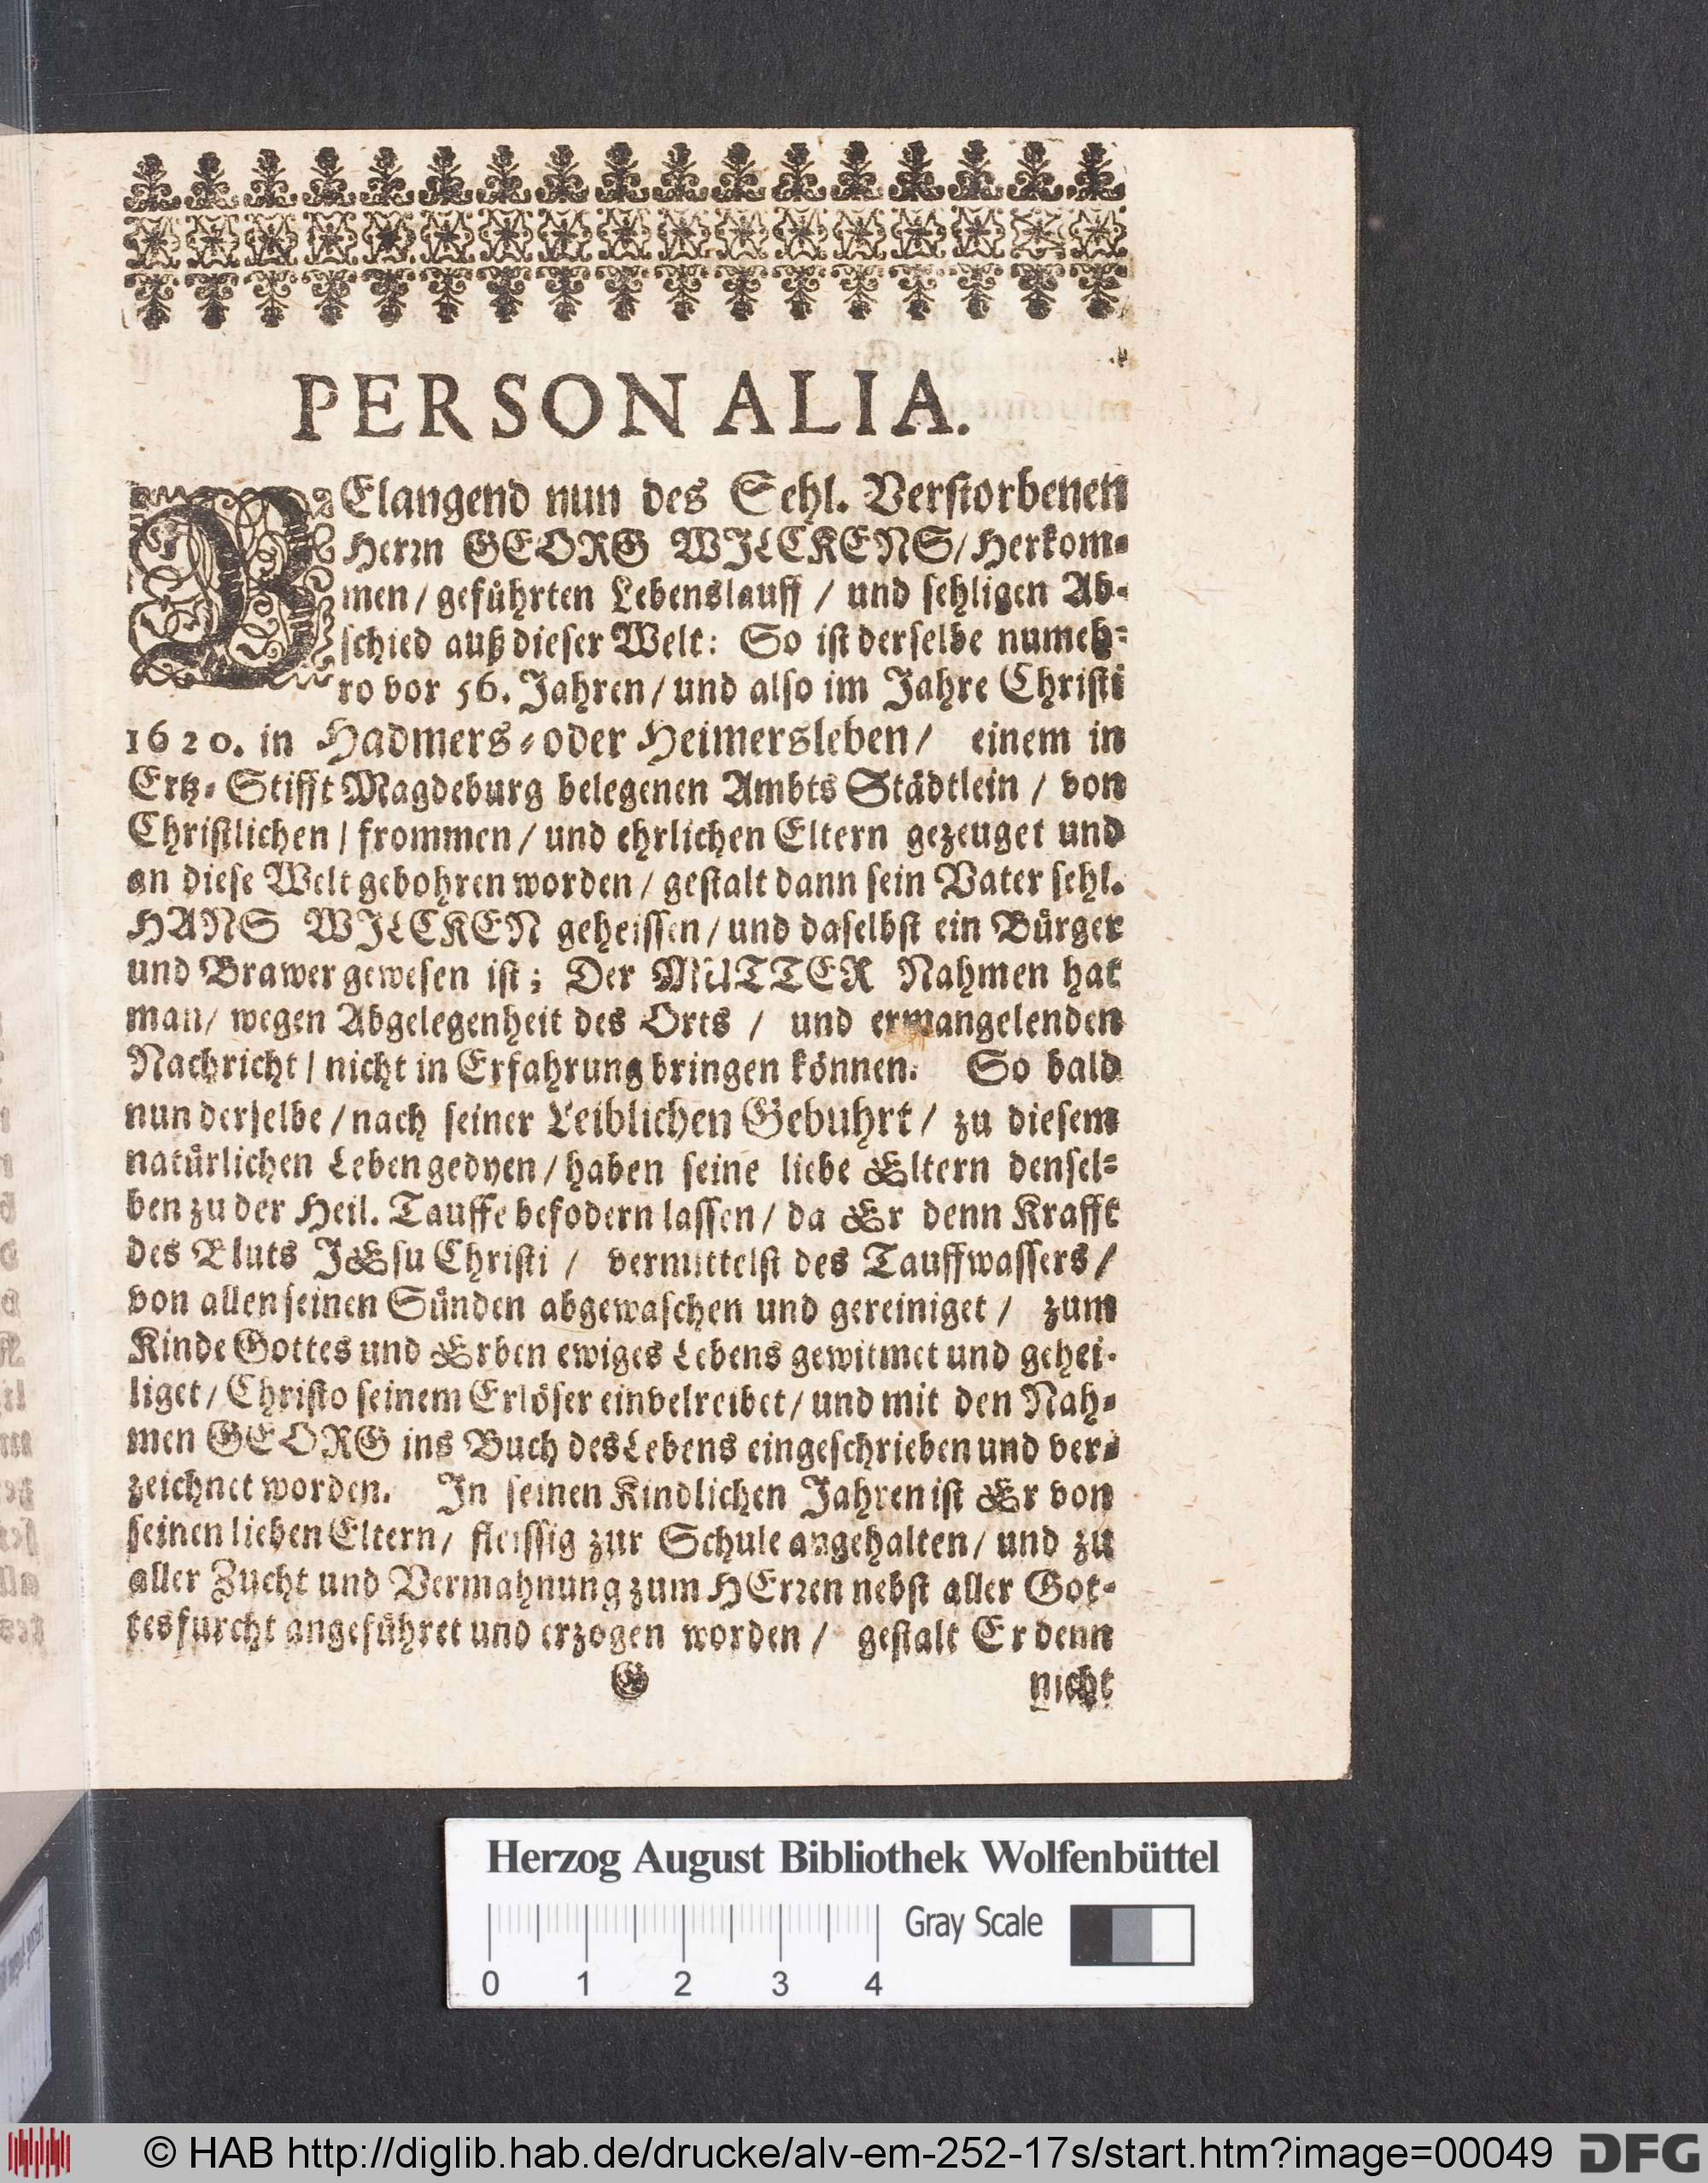 PERSONALIA.
BElangend nun des Sehl. Verstorbenen
Herrn GEORG WILCKENS/ Herkom⸗
men/ geführten Lebenslauff / und sehligen Ab⸗
schied auß dieser Welt: So ist derselbe numeh⸗
ro vor 56. Jahren/ und also im Jahre Christi
1620. in Hadmers⸗oder Heimersleben/ einem in
Ertz⸗Stifft Magdeburg belegenen Ambts Städtlein / von
Christlichen / frommen / und ehrlichen Eltern gezeuget und
an diese Welt gebohren worden / gestalt dann sein Vater sehl.
HANS WILCKEN geheissen/ und daselbst ein Bürger
und Brawer gewesen ist; Der MUTTER Nahmen hat
man/ wegen Abgelegenheit des Orts / und ermangelenden
Nachricht / nicht in Erfahrung bringen können. So bald
nun derselbe / nach seiner Leiblichen Gebuhrt / zu diesem
natürlichen Leben gedyen / haben seine liebe Eltern densel⸗
ben zu der Heil. Tauffe befodern lassen/ da Er denn Krafft
des Bluts JEsu Christi / vermittelst des Tauffwassers /
von allen seinen Sünden abgewaschen und gereiniget / zum
Kinde Gottes und Erben ewiges Lebens gewitmet und gehei⸗
liget / Christo seinem Erlöser einvelreibet / und mit den Nah⸗
men GEORG ins Buch des Lebens eingeschrieben und ver⸗
zeichnet worden. In seinen Kindlichen Jahren ist Er von
seinen lieben Eltern/ fleissig zur Schule angehalten/ und zu
aller Zucht und Vermahnung zum HErren nebst aller Got⸗
tesfurcht angeführet und erzogen worden / gestalt Er denn
G nicht
Herzog August Bibliothek Wolfenbüttel
Gray Scale
0 1 2 3 4
© HAB http://diglib.hab.de/drucke/alv-em-252-17s/start.htm?image=00049 DFG